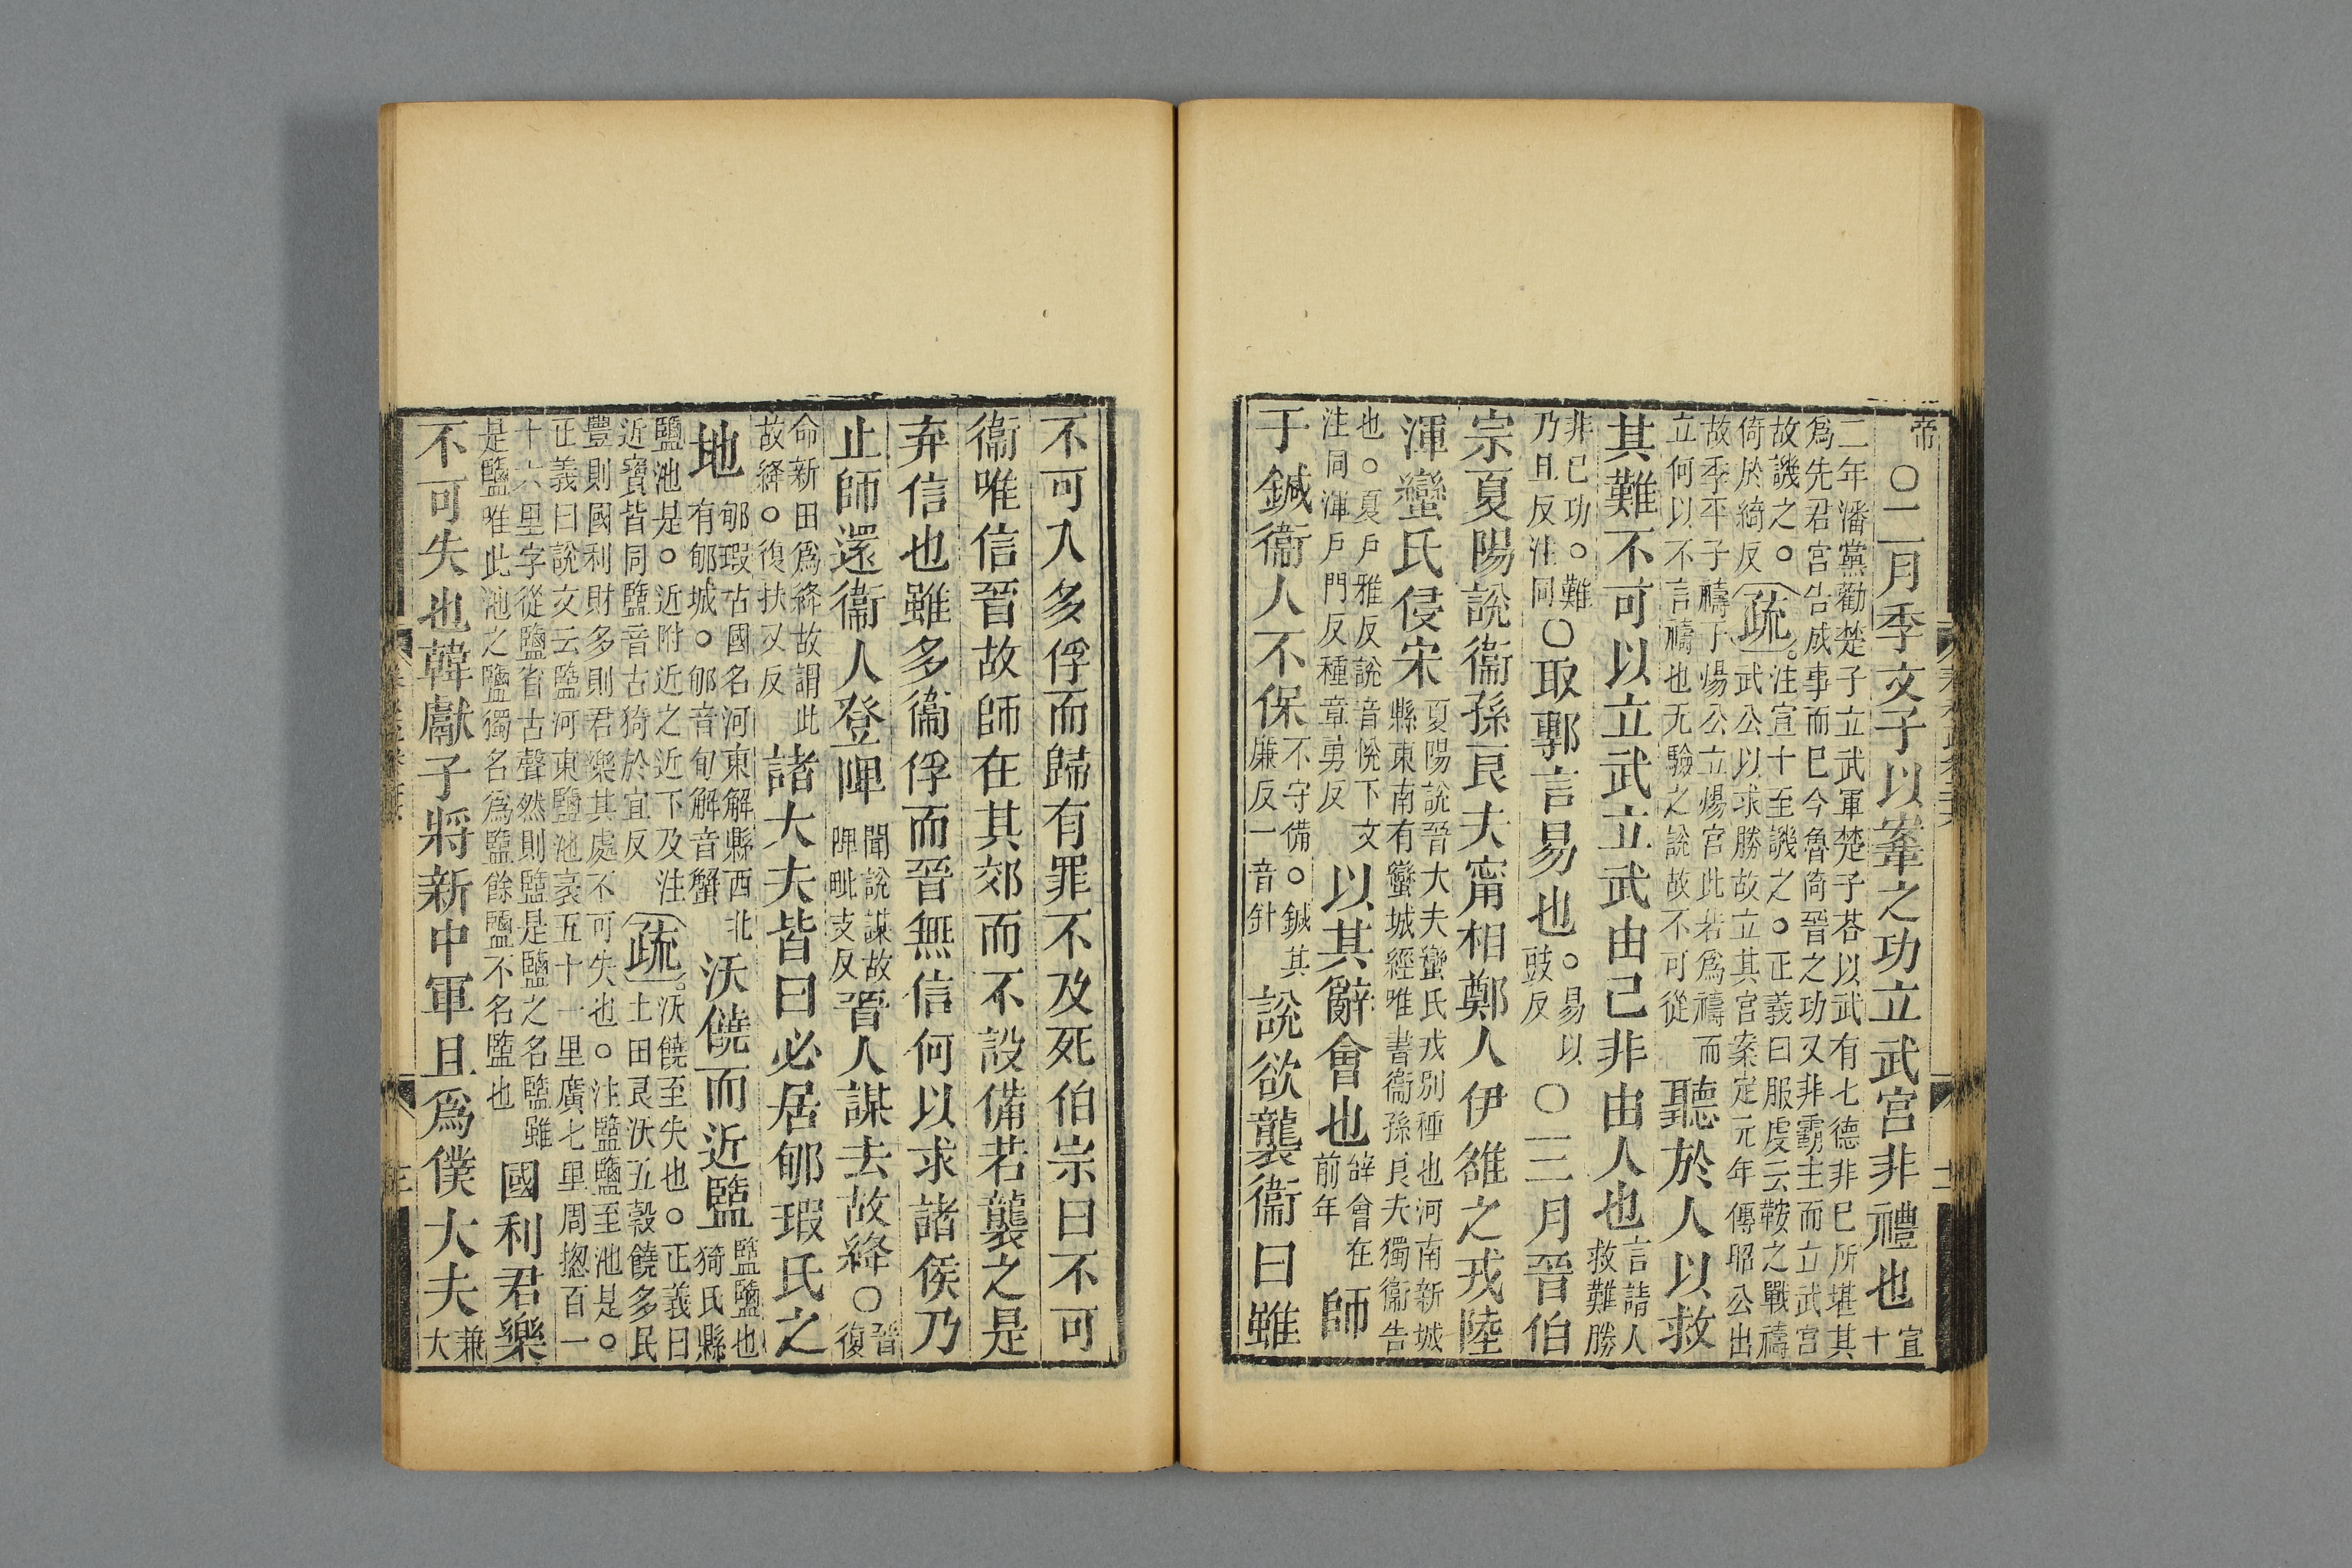 帝
〇二月季文子以鞌之功立武宮非禮也宣十
二年潘黨勸楚子立武軍楚子荅以武有七德非巳所堪其
爲先君宮告成事而巳今魯倚晉之功又非霸主而立武宮
故譏之○疏注宣十至譏之○正義曰服虔云鞍之戰禱
倚於綺反武公以求勝故立其宮案定元年傳昭公出
故季平子禱于煬公立煬宮此若爲禱而
立何以不言禱也无驗之說故不可從
聽於人以救
其難不可以立武立武由己非由人也言請人救難勝
非己功○難
乃旦反注同
〇取鄟言易也○易以豉反〇三月晉伯
宗夏陽說衞孫良夫甯相鄭人伊雒之戎陸
渾蠻氏侵宋夏陽說晉大夫蠻氏戎別種也河南新城
縣東南有蠻城經唯書衞孫良夫獨衞告
也○夏戶雅反說音悅下文
注同渾戶門反種章勇反
以其辭會也辭會在前年師
于鍼衞人不保不守備○鍼其廉反一音針說欲襲衞曰雖
不可入多俘而歸有罪不及死伯宗曰不可
衞唯信晉故師在其郊而不設備若襲之是
弃信也雖多衞俘而晉無信何以求諸侯乃
止師還衞人登陴聞說謀故陴毗支反晉人謀去故絳〇晉復
命新田爲絳故謂此
故絳○復扶又反
諸大夫皆曰必居郇瑕氏之
地郇瑕古國名河東解縣西北
有郇城○郇音旬解音蟹
沃饒而近盬盬鹽也猗氏縣
鹽池是○近附近之近下及注
近寶皆同盬音古猗於宜反
疏沃饒至失也○正義曰
土田良沃五穀饒多民
豐則國利財多則君樂其處不可失也○注盬鹽至池是○
正義曰說文云盬河東鹽池袤五十一里廣七里周揔百一
十六里字從鹽省古聲然則盬是鹽之名盬雖
是鹽唯此池之鹽獨名爲盬餘鹽不名盬也
國利君樂
不可失也韓獻子將新中軍且爲僕大夫兼大